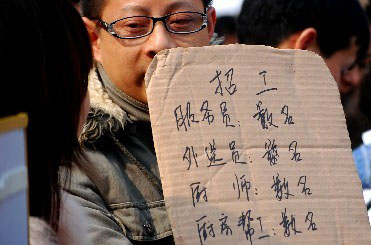 招工
服务员:数名
外送员:数名
厨师:数名
厨房帮工:数名